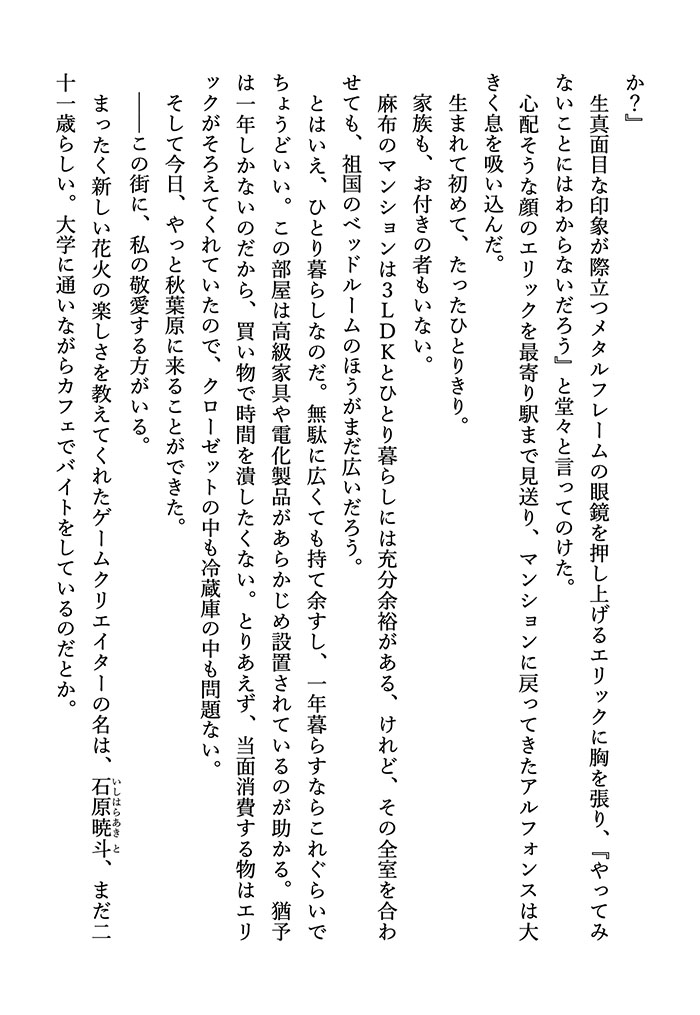 か？』
　生真面目な印象が際立つメタルフレームの眼鏡を押し上げるエリックに胸を張り、『やってみ
ないことにはわからないだろう』と堂々と言ってのけた。
　心配そうな顔のエリックを最寄り駅まで見送り、マンションに戻ってきたアルフォンスは大
きく息を吸い込んだ。
　生まれて初めて、たったひとりきり。
　家族も、お付きの者もいない。
　麻布のマンションは３ＬＤＫとひとり暮らしには充分余裕がある、けれど、その全室を合わ
せても、祖国のベッドルームのほうがまだ広いだろう。
　とはいえ、ひとり暮らしなのだ。無駄に広くても持て余すし、一年暮らすならこれぐらいで
ちょうどいい。この部屋は高級家具や電化製品があらかじめ設置されているのが助かる。猶予
は一年しかないのだから、買い物で時間を潰したくない。とりあえず、当面消費する物はエリ
ックがそろえてくれていたので、クローゼットの中も冷蔵庫の中も問題ない。
　そして今日、やっと秋葉原に来ることができた。
　――この街に、私の敬愛する方がいる。
　まったく新しい花火の楽しさを教えてくれたゲームクリエイターの名は、石原暁斗、まだ二
いしはらあきと
十一歳らしい。大学に通いながらカフェでバイトをしているのだとか。